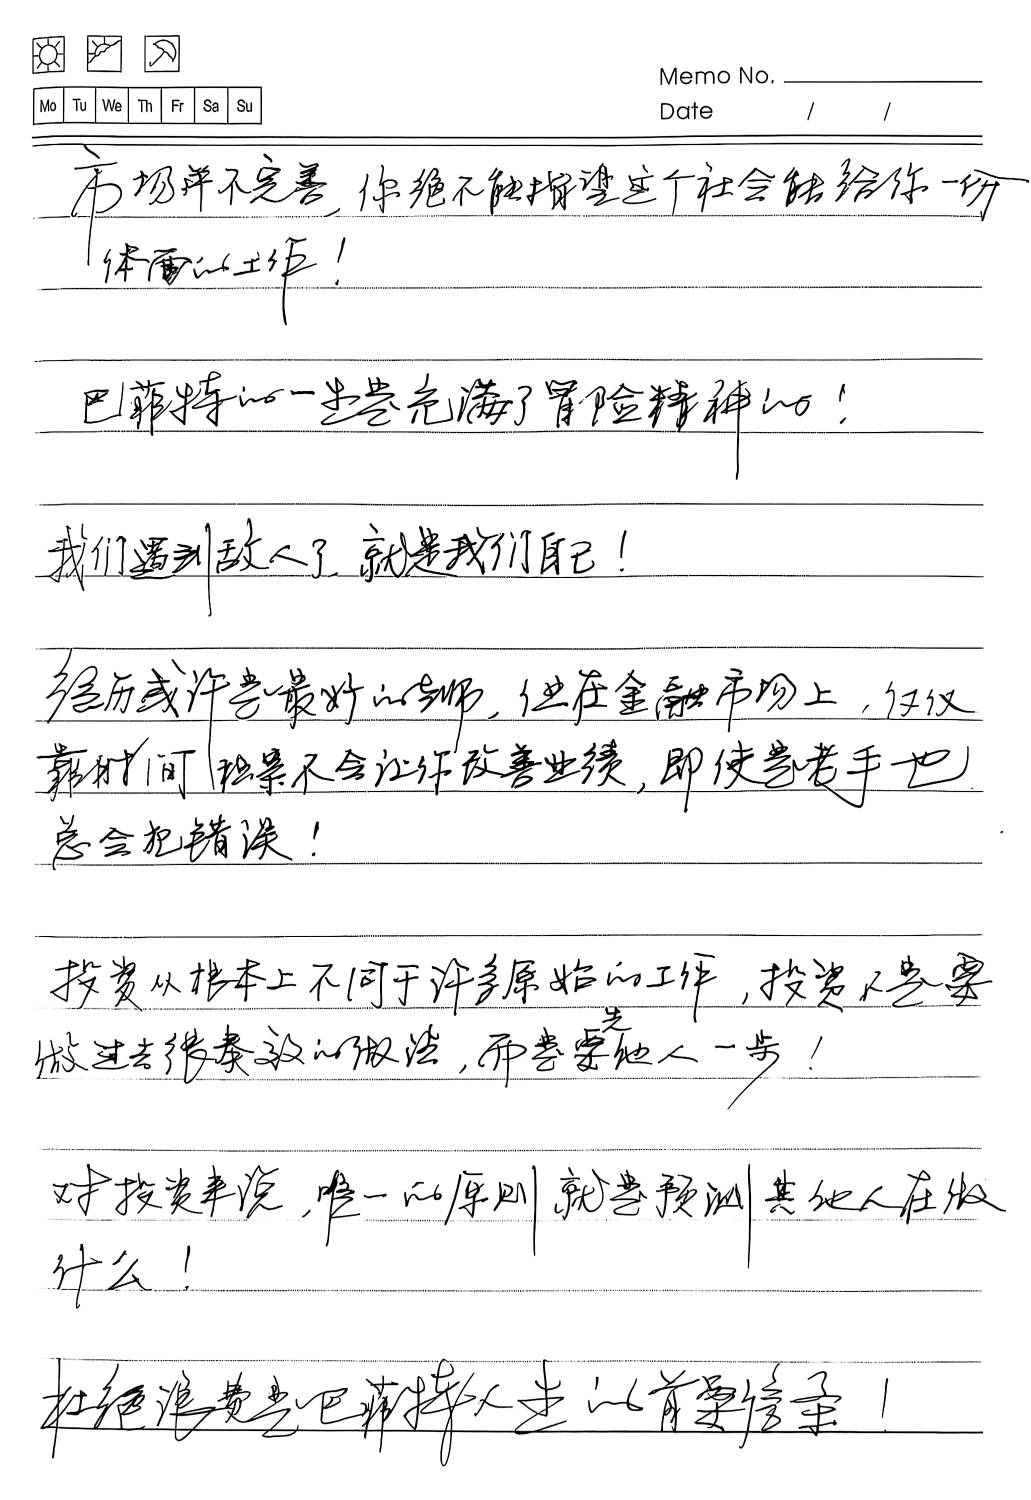 Memo No.
Mo Tu We Th Fr Sa Su
Date / /
市场并不完善，你绝不能指望这个社会能给你一份
体面的工作！
巴菲特的一生是充满了冒险精神的！
我们遇到敌人了，就是我们自己！
经历或许是最好的老师，但在金融市场上，仅仅
靠时间积累不会让你改善业绩，即使是老手也
总会犯错误！
投资从根本上不同于许多原始的工作，投资不是要
做过去很奏效的做法，而是要先他人一步！
对投资来说，唯一的原则就是预测其他人在做
什么！
杜绝浪费是巴菲特人生的首要信条！